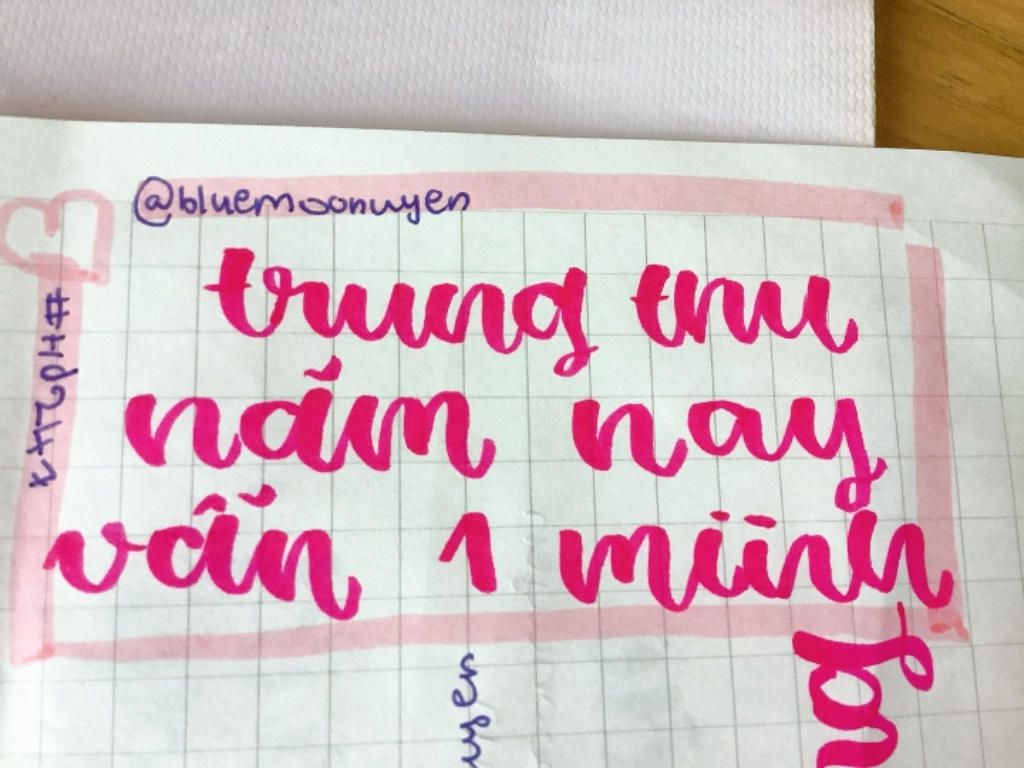 @bluemoonuyen
trung thu
năm nay
vẫn 1 mình
uyen